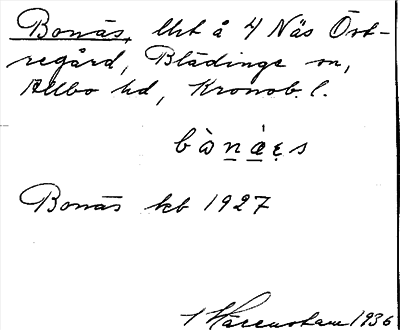 Bonäs, lht å 4 Näs Öst-
regård, Blädinge sn,
Allbo hd, Kronob. l.
bònáꬲs
Bonäs kb 1927
1936